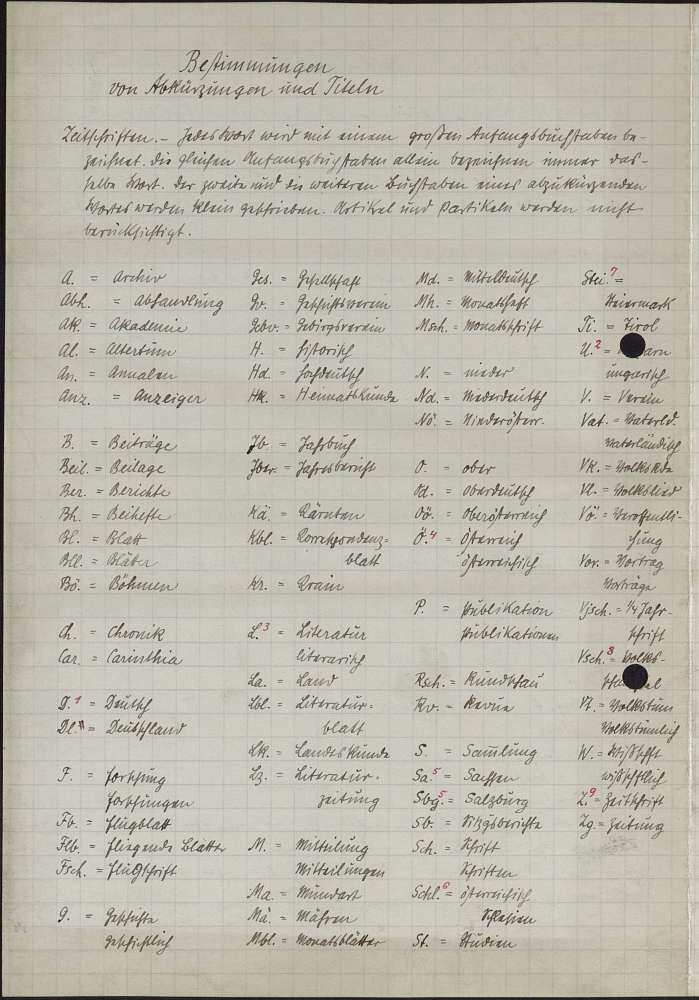 Bestimmungen
von Abkürzungen und Titeln
Zeitschriften. – Jedes Wort wird mit einem großen Anfangsbuchstaben be-
zeichnet. Die gleichen Anfangsbuchstaben allein bezeichnen immer das-
selbe Wort. Der zweite und die weiteren Buchstaben eines abzukürzenden
Wortes werden klein geschrieben. Artikel und Partikeln werden nicht
berücksichtigt.
A. = Archiv
Abh. = Abhandlung
Ak. = Akademie
Al. = Altertum
An. = Annalen
Anz. = Anzeiger
B. = Beiträge
Beil. = Beilage
Ber. = Berichte
Bh. = Beihefte
Bl. = Blatt
Bll. = Blätter
Bö. = Böhmen
Ch. = Chronik
Car. = Carinthia
D.1 = Deutsch
Dl. = Deutschland
F. = Forschung
Forschungen
Fb. = Flugblatt
Flb. = Fliegende Blätter
Fsch. = Flugschrift
G. = Geschichte
geschichtlich
Ges. = Gesellschaft
Gv. = Geschichtsverein
Gebv. = Gebirgsverein
H. = historisch
Hd. = hochdeutsch
Hk. = Heimatkunde
Jb. = Jahrbuch
Jber. = Jahresbericht
Kä. = Kärnten
Kbl. = Korrespondenz-
blatt
Kr. = Krain
L.3 = Literatur
literarisch
La. = Land
Lbl. = Literatur-
blatt
Lk. = Landeskunde
Lz. = Literatur-
zeitung
M. = Mitteilung
Mitteilungen
Ma. = Mundart
Mä. = Mähren
Mbl. = Monatsblätter
Md. = Mitteldeutsch
Mh. = Monatsheft
Msch. = Monatsschrift
N. = nieder
Nd. = Niederdeutsch
Nö. = Niederösterr.
O. = ober
Od. = Oberdeutsch
Oö. = Oberösterreich
Ö.4 = Österreich
österreichisch
P. = Publikation
Publikationen
Rsch. = Rundschau
Rv. = Revue
S. = Sammlung
Sa.5 = Sachsen
Sbg.5 = Salzburg
Sb. = Sitzgsberichte
Sch. = Schrift
Schriften
Schl.6 = österreichisch
Schlesien
St. = Studien
Stei.7 =
Steiermark
Ti. = Tirol
U.2 =
ungarisch
V. = Verein
Vat. = Vaterld.
vaterländisch
Vk. = Volkskde
Vl. = Volkslied
Vö. = Veröffentli-
chung
Vor. = Vortrag
Vorträge
Vjsch. = 1/4 Jahr-
schrift
Vsch.8 = Volks-
Vt. = Volkstum
volkstümlich
W. = Wissschft
wissschftlich
Z.9 = Zeitschrift
Zg. = Zeitung